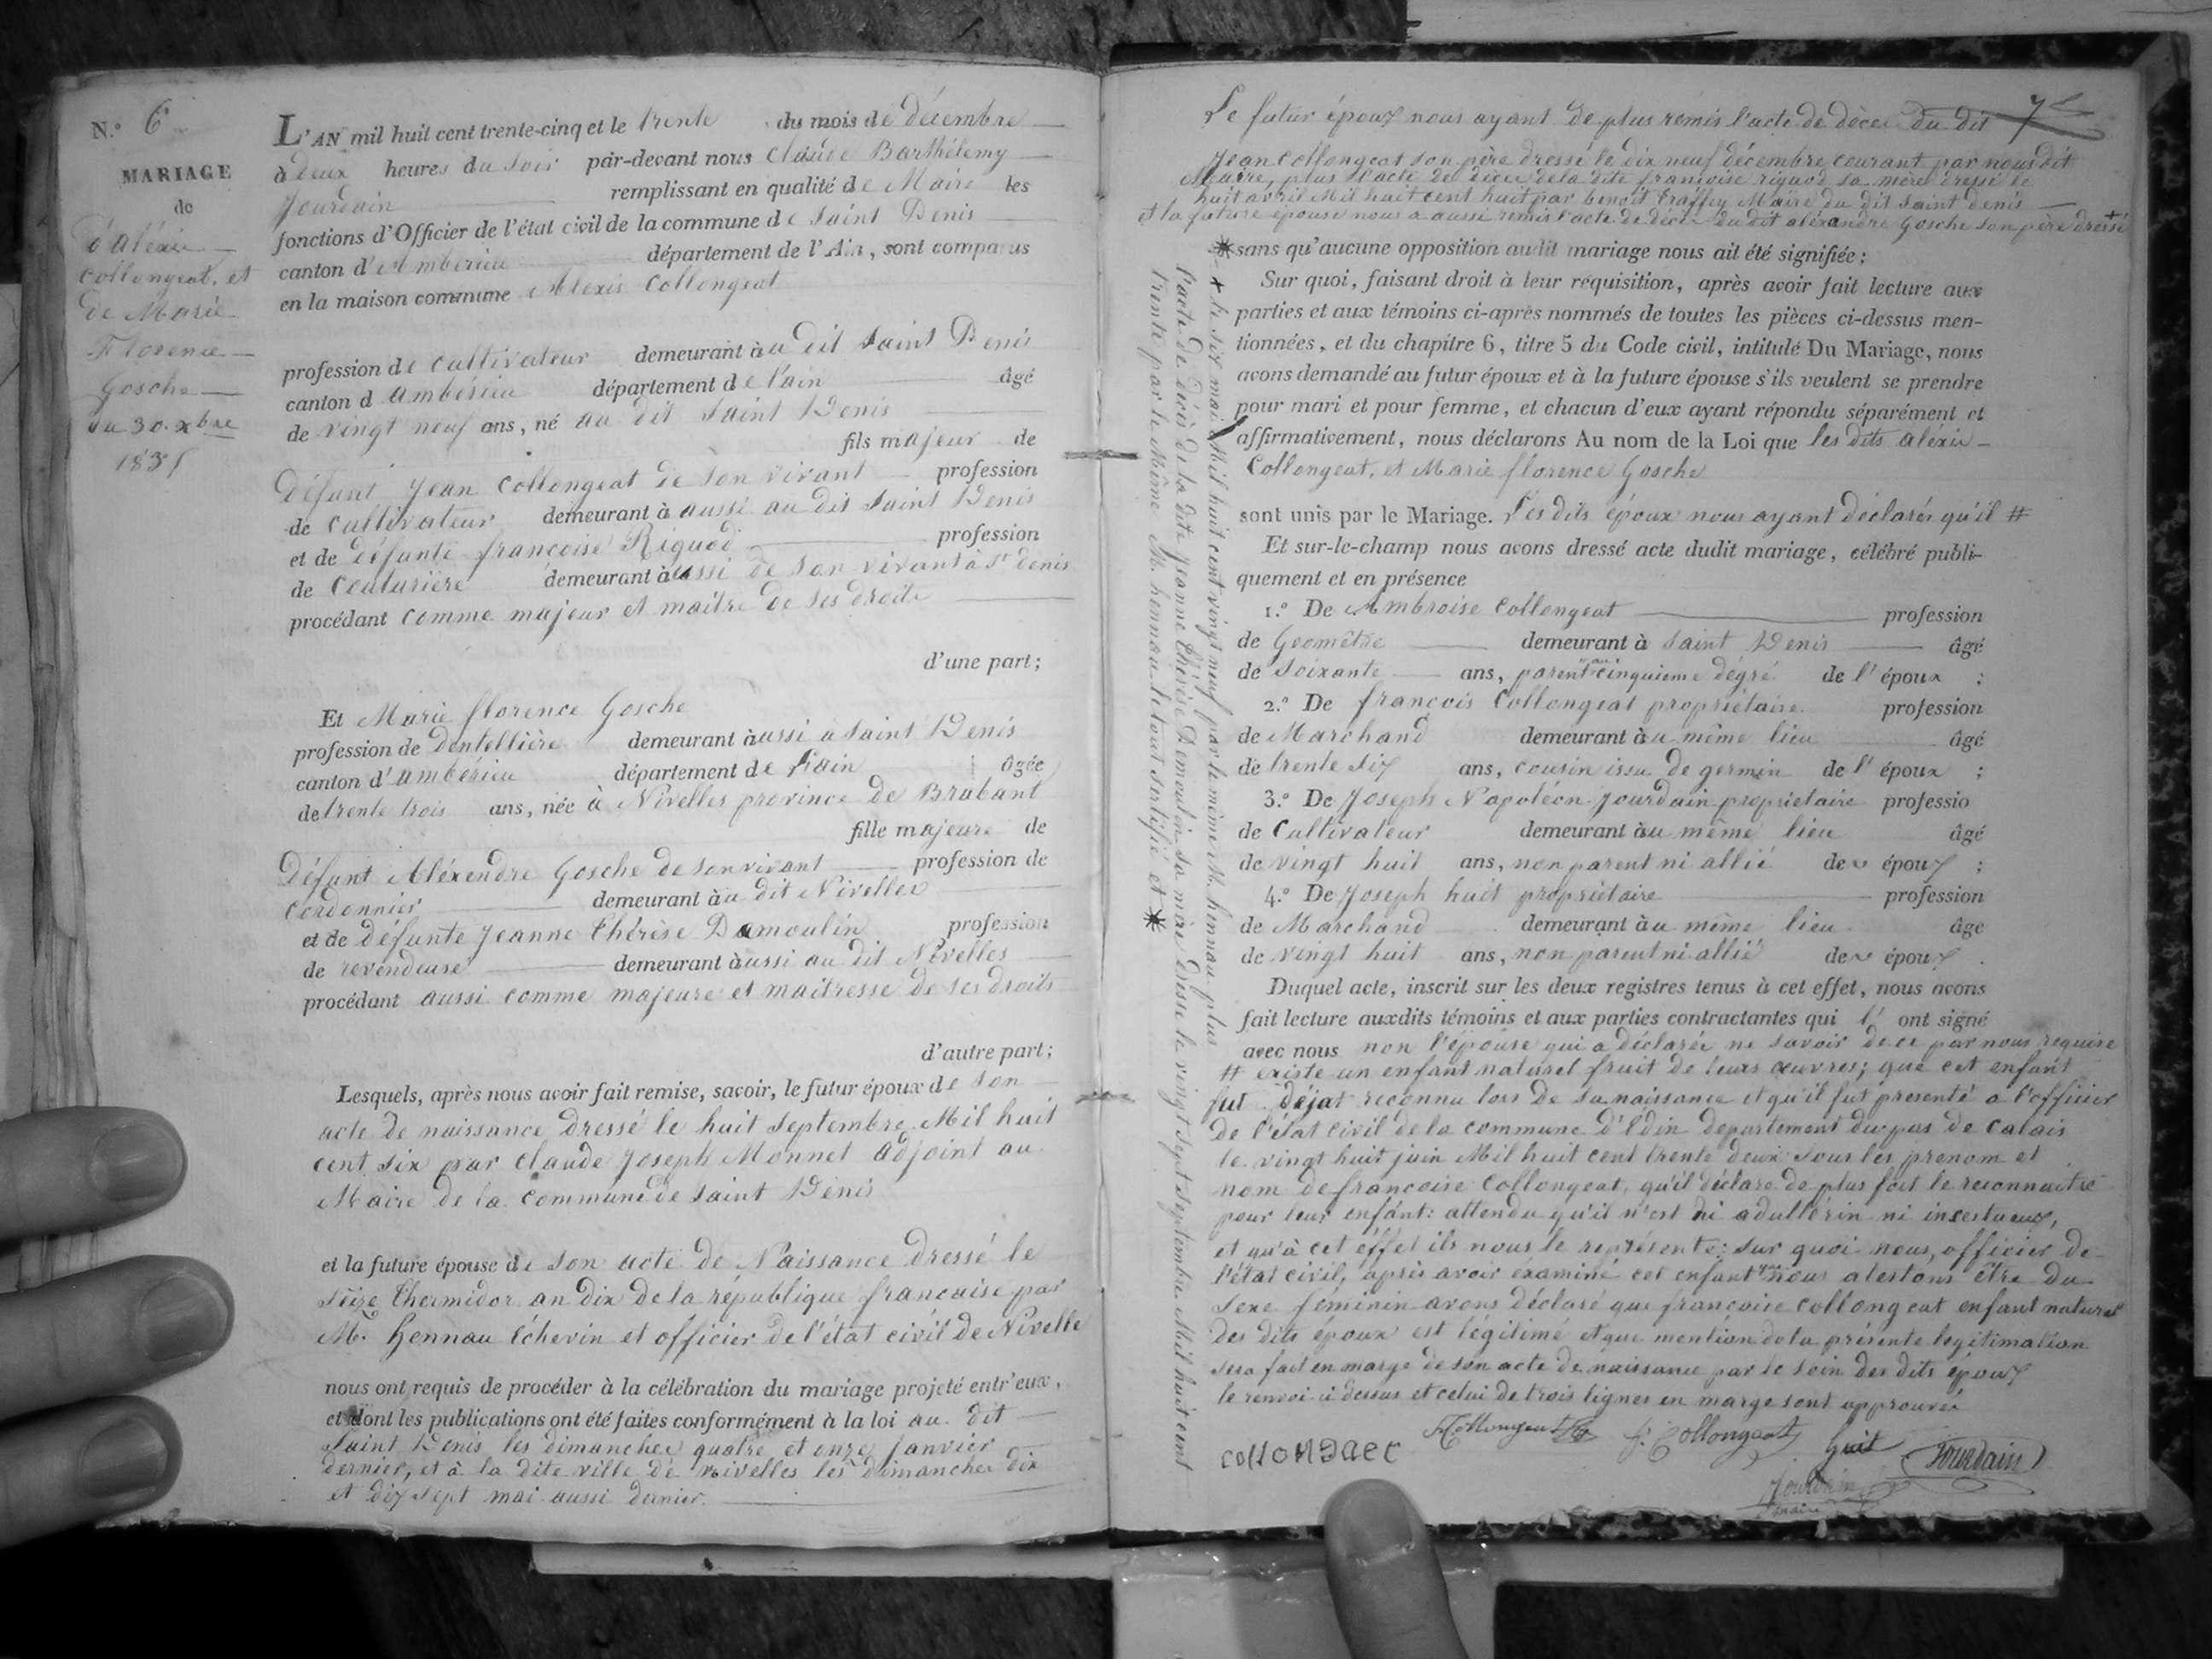 N.° 6
MARIAGE
de
d'aléxis
Collongeat, et
de Marie
Florence
Gosche
du 30. xbre
1835
L'AN mil huit cent trente-cinq et le trente du mois de décembre
à deux heures du soir par-devant nous Claude Barthélemy
Jourdain remplissant en qualité de Maire les
fonctions d'Officier de l'état civil de la commune de Saint Denis
canton d'Ambérieu département de l'Ain, sont comparus
en la maison commune Alexis Collongeat
profession de cultivateur demeurant au dit Saint Denis
canton d'ambérieu département de l'ain âgé
de vingt neuf ans, né au dit Saint Denis
fils majeur de
Défunt Jean Collongeat de son vivant profession
de cultivateur demeurant à aussi au dit Saint Denis
et de défunte françoise Riguod profession
de Couturière demeurant à aussi de son vivant à St denis
procédant comme majeur et maitre de ses droits
d'une part;
Et Marie florence Gosche
profession de Dentellière demeurant à aussi à Saint Denis
canton d'ambérieu département de l'ain âgée
de trente trois ans, née à Nivelles province de Brabant
fille majeure de
Défunt Aléxendre Gosche de son vivant profession de
Cordonnier demeurant au dit Nivelles
et de défunte Jeanne Thérèse Damoulin profession
de revendeuse demeurant à aussi au dit Nivelles
procédant aussi comme majeure et maitresse de ses droits
d'autre part;
Lesquels, après nous avoir fait remise, savoir, le futur époux de son
acte de naissance dressé le huit Septembre Mil huit
cent six par Claude Joseph Monnet adjoint au
Maire de la Commune de Saint Denis
et la future épouse de son acte de Naissance dressé le
Seize Thermidor an dix de la république francaise par
M. Hennau Echevin et officier de l'état civil de Nivelle
nous ont requis de procéder à la célébration du mariage projeté entr'eux,
et dont les publications ont été faites conformément à la loi au dit
Saint Denis les dimanches quatre et onze Janvier
dernier, et à la dite ville de nivelles les dimanches dix
et dix sept mai aussi dernier.
Le futur époux nous ayant de plus remis l'acte de décès du dit
Jean Collongeat son père dressé le dix neuf décembre courant par nous dit
Maire, plus l'acte de décès de la dite françoise riguod sa mère dressé le
huit avril Mil huit cent huit par benoit traffey Maire du dit Saint denis
et la future épouse nous a aussi remis l'acte de décès du dit aléxandre Gosche son père dressé +
+ le six mai Mil huit cent vingt neuf par le même M. hennau plus
l'acte de décès de la dite Jeanne thérèse Demoulin sa mère dressé le vingt sept Septembre Mil huit cent
trente par le Même M. hennau le tout certifié et *
* sans qu'aucune opposition audit mariage nous ait été signifiée;
Sur quoi, faisant droit à leur réquisition, après avoir fait lecture aux
parties et aux témoins ci-après nommés de toutes les pièces ci-dessus men-
tionnées, et du chapitre 6, titre 5 du Code civil, intitulé Du Mariage, nous
avons demandé au futur époux et à la future épouse s'ils veulent se prendre
pour mari et pour femme, et chacun d'eux ayant répondu séparément et
affirmativement, nous déclarons Au nom de la Loi que les dits aléxis
Collongeat, et Marie florence Gosche
sont unis par le Mariage. Les dits époux nous ayant déclarés qu'il #
Et sur-le-champ nous avons dressé acte dudit mariage, célébré publi-
quement et en présence
1.° De Ambroise Collongeat profession
de Géomêtre demeurant à Saint Denis âgé
de Soixante ans, parent au cinquieme dégré de l'époux ;
2.° De françois Collongeat propriétaire profession
de Marchand demeurant au même lieu âgé
de trente six ans, cousin issu de germin de l'époux ;
3.° De Joseph Napoléon Jourdain propriétaire professio
de Cultivateur demeurant au même lieu âgé
de vingt huit ans, non parent ni allié des époux ;
4.° De Joseph huit propriétaire profession
de Marchand demeurant au même lieu âge
de vingt huit ans, non parent ni allié des époux .
Duquel acte, inscrit sur les deux registres tenus à cet effet, nous avons
fait lecture auxdits témoins et aux parties contractantes qui l' ont signé
avec nous non l'épouse qui a déclarée ne savoir de ce par nous requise
# existe un enfant naturel fruit de leurs œuvres; que cet enfant
fut déjat reconnu lors de sa naissance et qu'il fut présenté a l'officier
de l'état civil de la commune d'Edin département du pas de Calais
le vingt huit juin Mil huit cent trente deux sous les prenom et
nom de francoise Collongeat, qu'il déclare de plus fort le reconnaitre
pour leur enfant: attendu qu'il n'est ni adultérin ni incestueux,
et qu'à cet éffet ils nous le représente: sur quoi nous, officier de
l'état civil, après avoir examiné cet enfant que nous atestons être du
Sexe féminin avons déclaré que francoise Collongeat enfant naturel
des dits époux est légitimé et que mention de la présente légitimation
sera fait en marge de son acte de naissance par le soin des dits époux
le renvoi ci dessus et celui de trois lignes en marge sont approuvés
collongaet Collongeat f. Collongeat huit Jourdain
Jourdain
maire